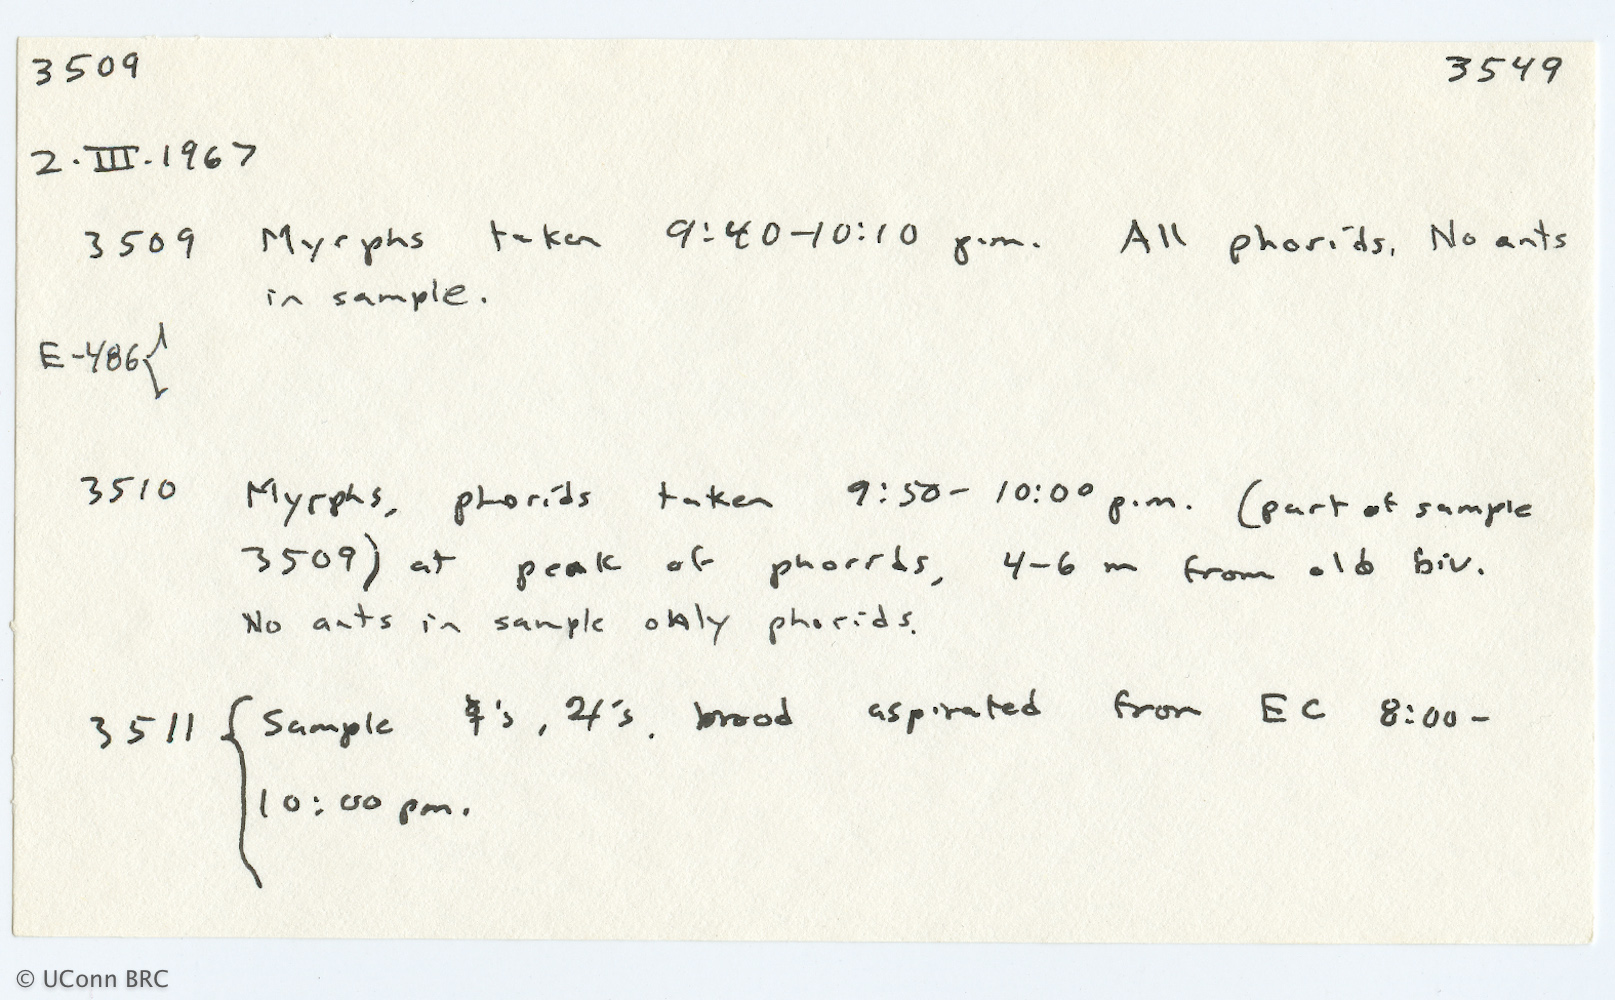 3509 3549
2.III.1967
3509 Myrphs taken 9:40-10:10 p.m. All phorids. No ants
in sample.
E-486{
3510 Myrphs, phorids taken 9:50-10:00 p.m. (part of sample
3509) at peak of phorids, 4-6 m from old biv.
No ants in sample only phorids.
3511 { Sample 's, 's, brood aspirated from EC 8:00-
10:00 pm.
© UConn BRC